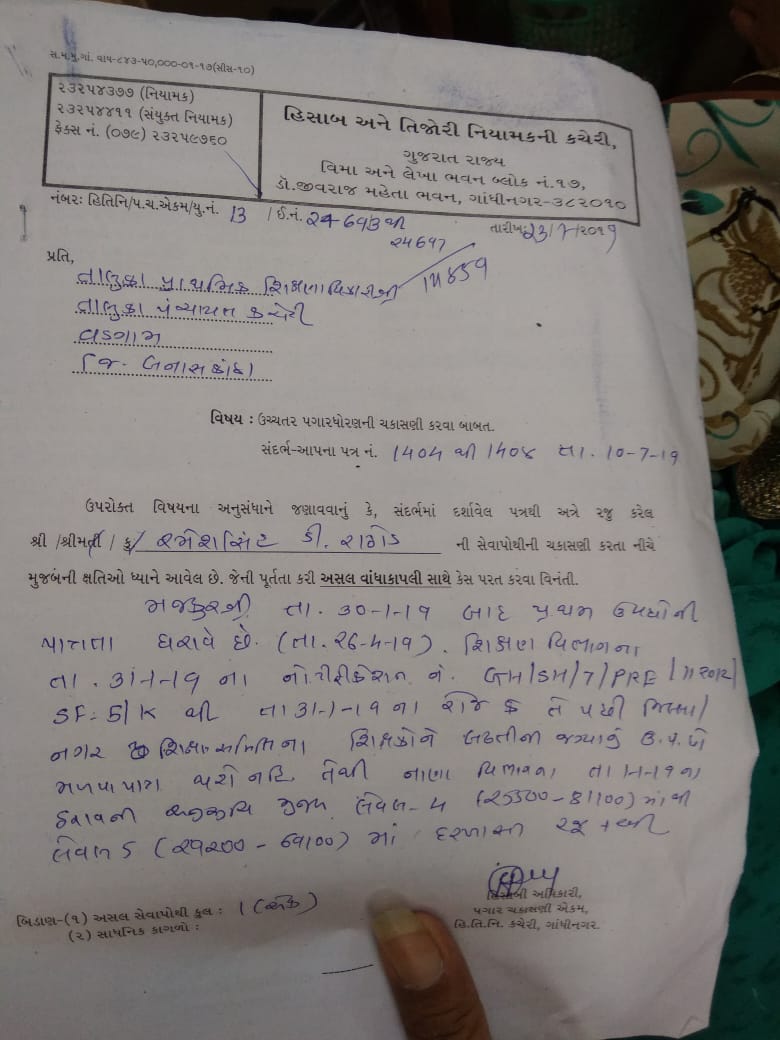 સ.મ.મુ.ગાં. વાપ-૮૪૩-૫૦,૦૦૦-૦૧-૧૭(સીસ-૧૦)
૨૩૨૫૪૩૭૭ (નિયામક)
૨૩૨૫૪૪૧૧ (સંયુક્ત નિયામક)
ફેક્સ નં. (૦૭૯) ૨૩૨૫૯૭૬૦
હિસાબ અને તિજોરી નિયામકની કચેરી,
ગુજરાત રાજ્ય
વિમા અને લેખા ભવન બ્લોક નં.૧૭,
ડૉ.જીવરાજ મહેતા ભવન, ગાંધીનગર-૩૮૨૦૧૦
નંબરઃ હિતિનિ/પ.ચ.એકમ/યુ.નં. 13 /ઈ.નં. 24693 થી
24697
તારીખઃ 23/7/૨૦૧9
પ્રતિ,
તાલુકા પ્રાથમિક શિક્ષણાધિકારીશ્રી
તાલુકા પંચાયત કચેરી
વડગામ
જિ. બનાસકાંઠા
વિષય : ઉચ્ચતર પગારધોરણની ચકાસણી કરવા બાબત.
સંદર્ભ-આપના પત્ર નં. 1404 થી 140૪ તા. 10-7-19
ઉપરોક્ત વિષયના અનુસંધાને જણાવવાનું કે, સંદર્ભમાં દર્શાવેલ પત્રથી અત્રે રજુ કરેલ
શ્રી /શ્રીમતી / કુ રમેશસિંહ ડી. રાઠોડ ની સેવાપોથીની ચકાસણી કરતા નીચે
મુજબની ક્ષતિઓ ધ્યાને આવેલ છે. જેની પૂર્તતા કરી અસલ વાંધાકાપલી સાથે કેસ પરત કરવા વિનંતી.
મજકુરશ્રી તા. 30-1-19 બાદ પ્રથમ ઉપધોની
પાત્રતા ધરાવે છે. (તા. 26-4-19). શિક્ષણ વિભાગના
તા. 31-1-19 ના નોટીફીકેશન નં. GH/SH/7/PRE/112012/
SF:5/K થી તા 31-1-19 ના રોજ કે તે પછી જિલ્લા/
નગર શિક્ષણ સમિતિના શિક્ષકોને બઢતીની જગ્યાનું ઉ.પ.ધો
મળવાપાત્ર થશે નહિ તેથી નાણા વિભાગના તા 1-1-19 ના
ઠરાવની મુજબ લેવલ-4 (25500-81100) માંથી
લેવલ 5 (29200-69100) માં દરખાસ્ત રજૂ કરવી
હિસાબી અધિકારી,
પગાર ચકાસણી એકમ,
હિ.તિ.નિ. કચેરી, ગાંધીનગર.
બિડાણ-(૧) અસલ સેવાપોથી કુલ : 1 (એક)
(૨) સાધનિક કાગળો :